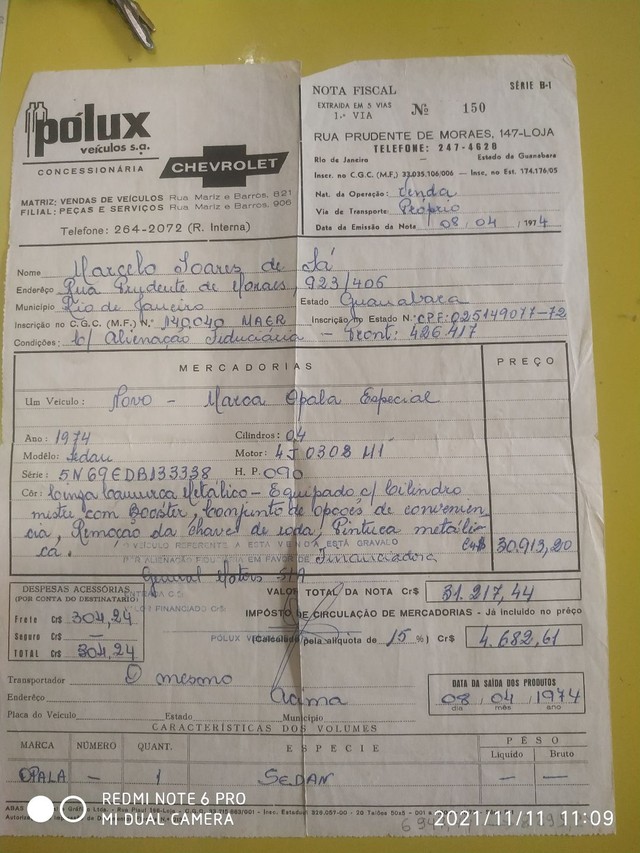 pólux
veículos s.a.
CONCESSIONÁRIA
CHEVROLET
MATRIZ: VENDAS DE VEÍCULOS Rua Mariz e Barros, 821
FILIAL: PEÇAS E SERVIÇOS Rua Mariz e Barros, 906
Telefone: 264-2072 (R. Interna)
NOTA FISCAL
SÉRIE B-1
EXTRAIDA EM 5 VIAS
1.ª VIA
Nº 150
RUA PRUDENTE DE MORAES, 147-LOJA
TELEFONE: 247-4620
Rio de Janeiro — Estado da Guanabara
Inscr. no C.G.C. (M.F.) 33.035.106/006 — Insc. no Est. 174.176/05
Nat. da Operação: Venda
Via de Transporte: Próprio
Data da Emissão da Nota 08 / 04 / 1974
Nome Marcelo Soares de Sá
Enderêço Rua Prudente de Moraes, 923/406
Município Rio de Janeiro Estado Guanabara
Inscrição no C.G.C. (M.F.) N.º 140.040 MAER Inscrição no Estado N.º CPF: 025149077-72
Condições: c/ Alienação Fiduciária - Pront: 426.417
MERCADORIAS PREÇO
Um Veículo: Novo - Marca Opala Especial
Ano: 1974 Cilindros: 04
Modêlo: Sedan Motor: 4J0308 H1
Série: 5N69EDB133338 H. P. 090
Côr: Cinza Camurça Metálico - Equipado c/ Cilindro
mestre com Booster, Conjunto de opções de conveniên
cia, Remoção da chave de roda, Pintura metáli
ca. Cr$ 30.913,20
VEÍCULO REFERENTE A ESTA VENDA ESTÁ GRAVADO
POR ALIENAÇÃO FIDUCIÁRIA EM FAVOR DE Financiadora
General Motors S/A
ENTRADA C/$
VALOR FINANCIADO C/$
DESPESAS ACESSÓRIAS
(POR CONTA DO DESTINATÁRIO)
Frete Cr$ 304,24
Seguro Cr$ —
TOTAL Cr$ 304,24
VALOR TOTAL DA NOTA Cr$ 31.217,44
IMPÔSTO DE CIRCULAÇÃO DE MERCADORIAS - Já incluído no preço
(Calculado pela alíquota de 15 %) Cr$ 4.682,61
Transportador O mesmo
Enderêço Acima
Placa do Veículo Estado Município
DATA DA SAÍDA DOS PRODUTOS
08 04 1974
dia mês ano
CARACTERÍSTICAS DOS VOLUMES
MARCA NÚMERO QUANT. ESPECIE PÊSO
Líquido Bruto
OPALA — 1 SEDAN — —
REDMI NOTE 6 PRO
MI DUAL CAMERA
2021/11/11 11:09